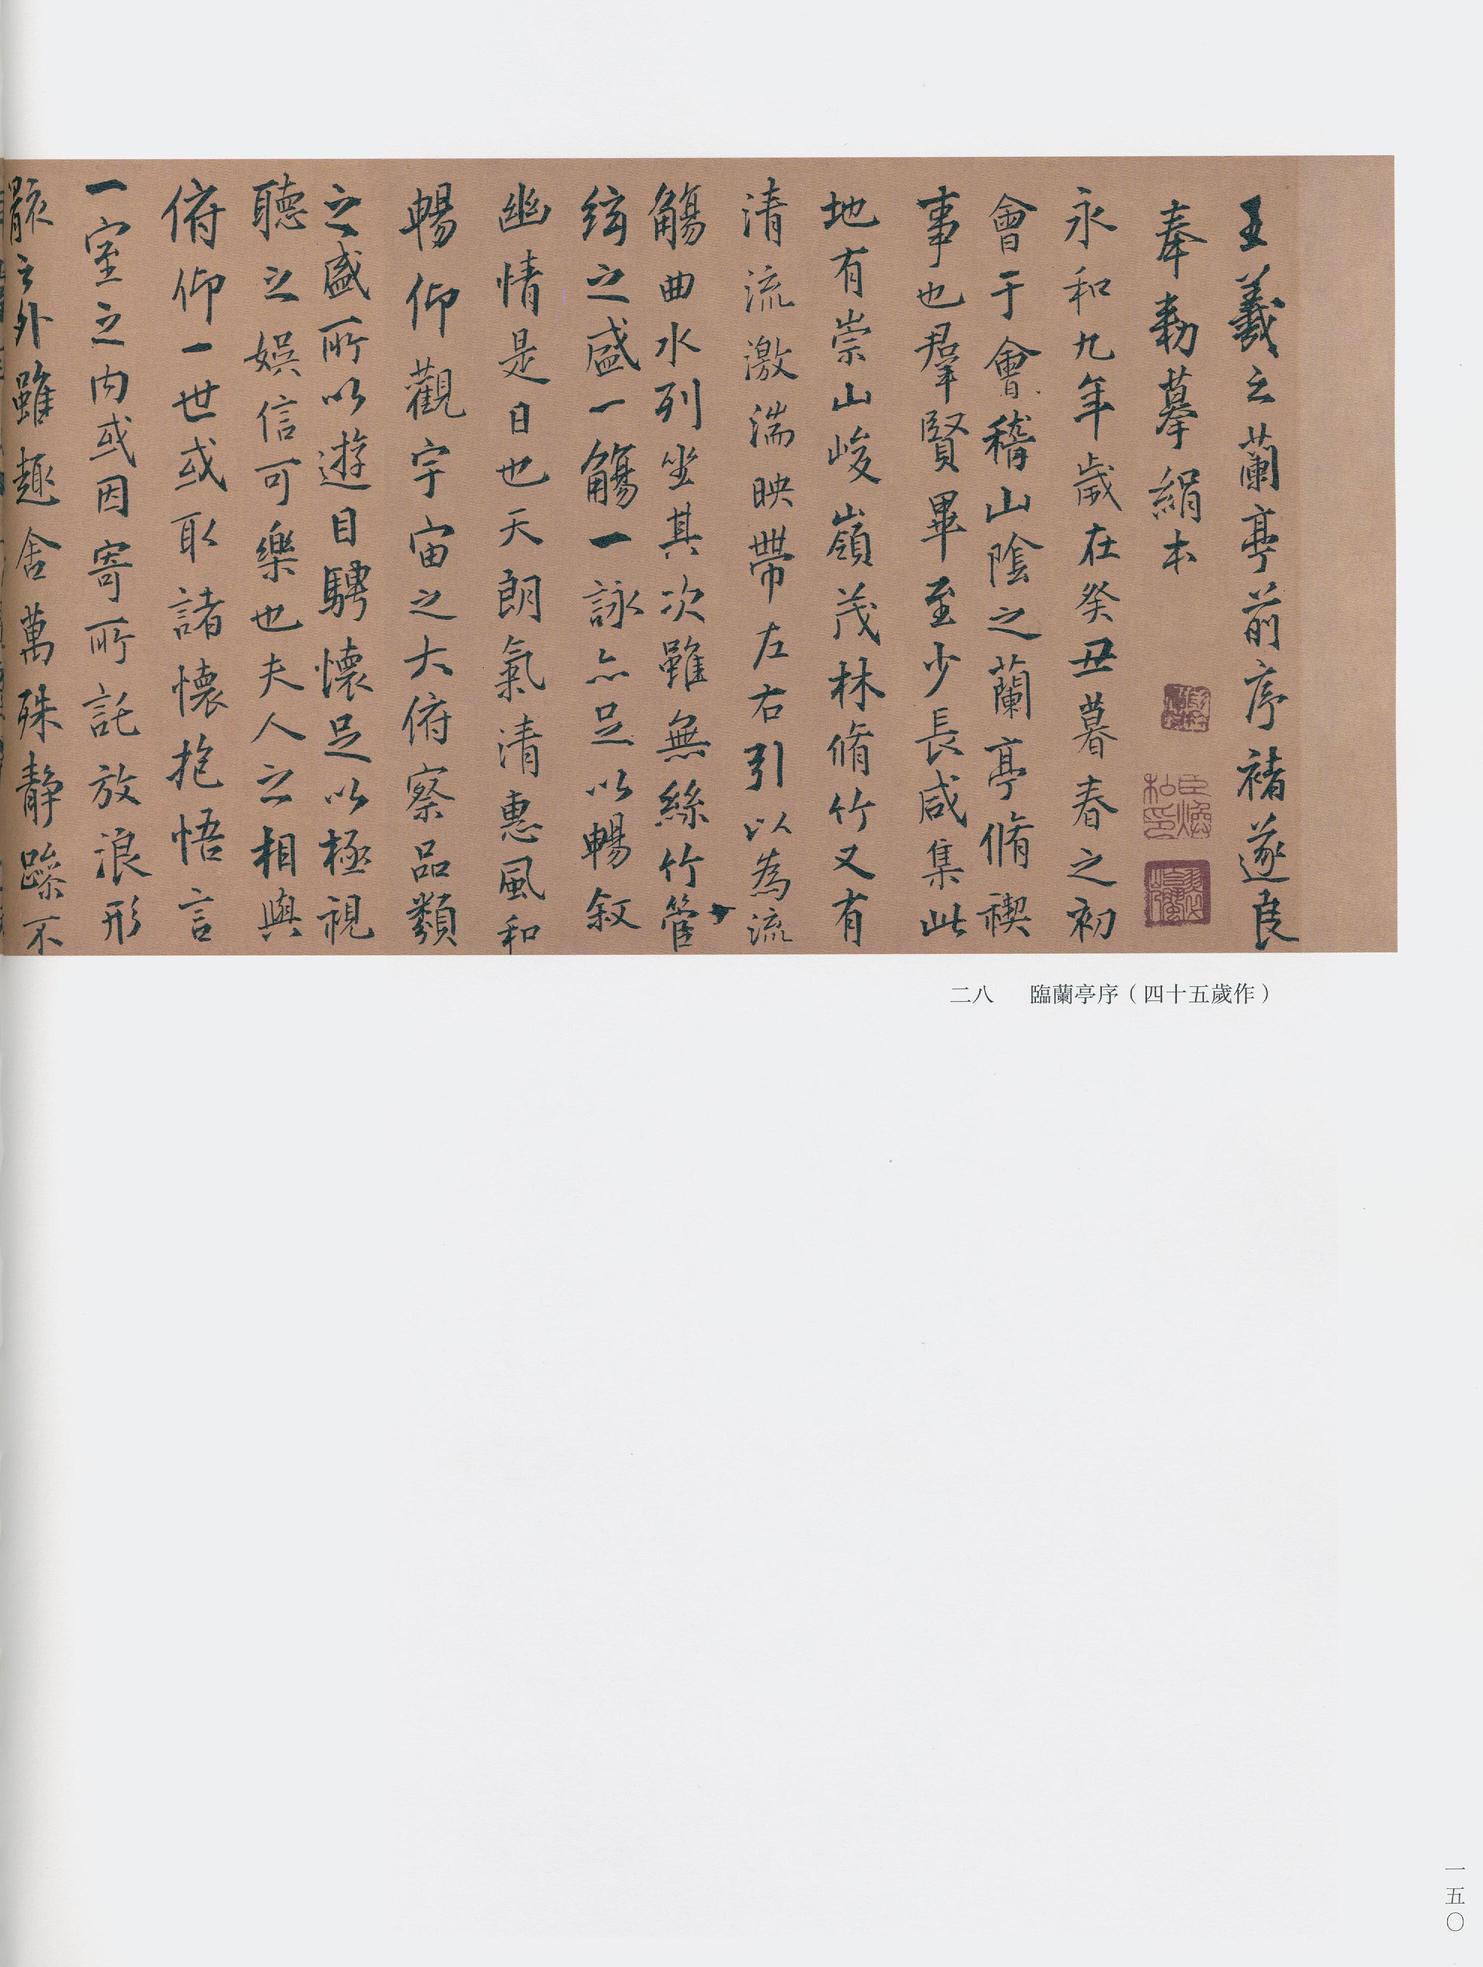 王羲之蘭亭前序褚遂良
奉勑摹絹本
永和九年歲在癸丑暮春之初
會于會稽山陰之蘭亭脩禊
事也羣賢畢至少長咸集此
地有崇山峻嶺茂林脩竹又有
清流激湍映帶左右引以為流
觴曲水列坐其次雖無絲竹管
絃之盛一觴一詠亦足以暢敘
幽情是日也天朗氣清惠風和
暢仰觀宇宙之大俯察品類
之盛所以遊目騁懷足以極視
聽之娛信可樂也夫人之相與
俯仰一世或取諸懷抱悟言
一室之內或因寄所託放浪形
骸之外雖趣舍萬殊靜躁不
二八　臨蘭亭序（四十五歲作）
一五〇